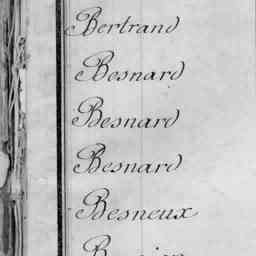 Bertrand
Besnard
Besnard
Besnard
Besneux